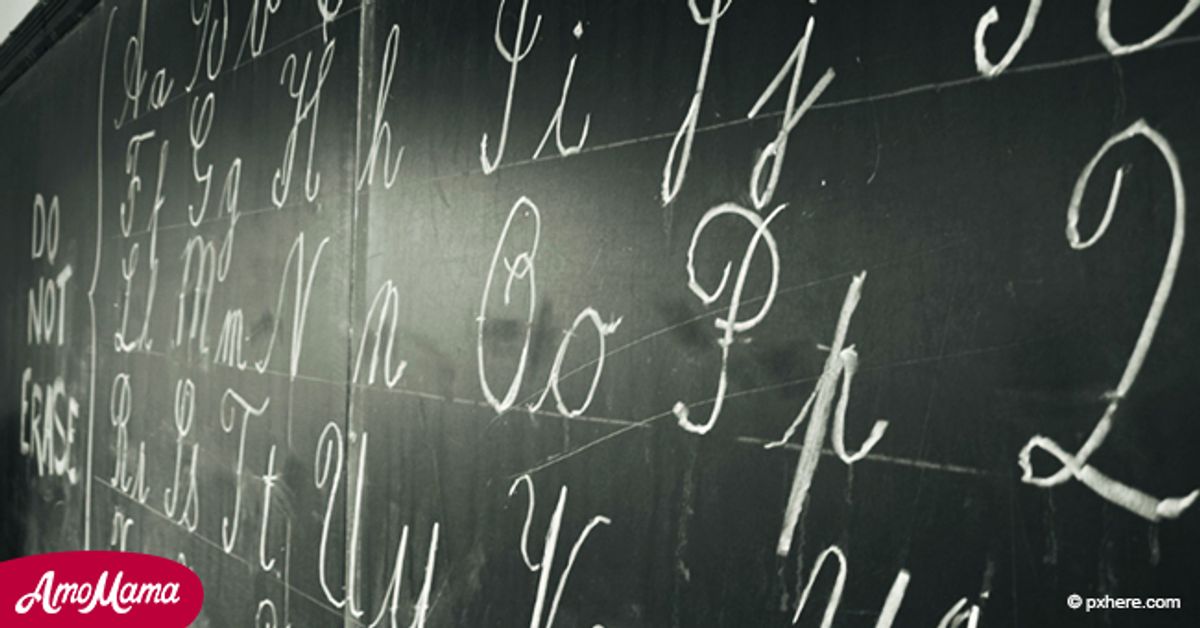 DO
NOT
ERASE
Aa
Ff Gg Hh Ii Jj
Ll Mm Nn Oo Pp Q
Rr Ss Tt Uu V
AmoMama
© pxhere.com